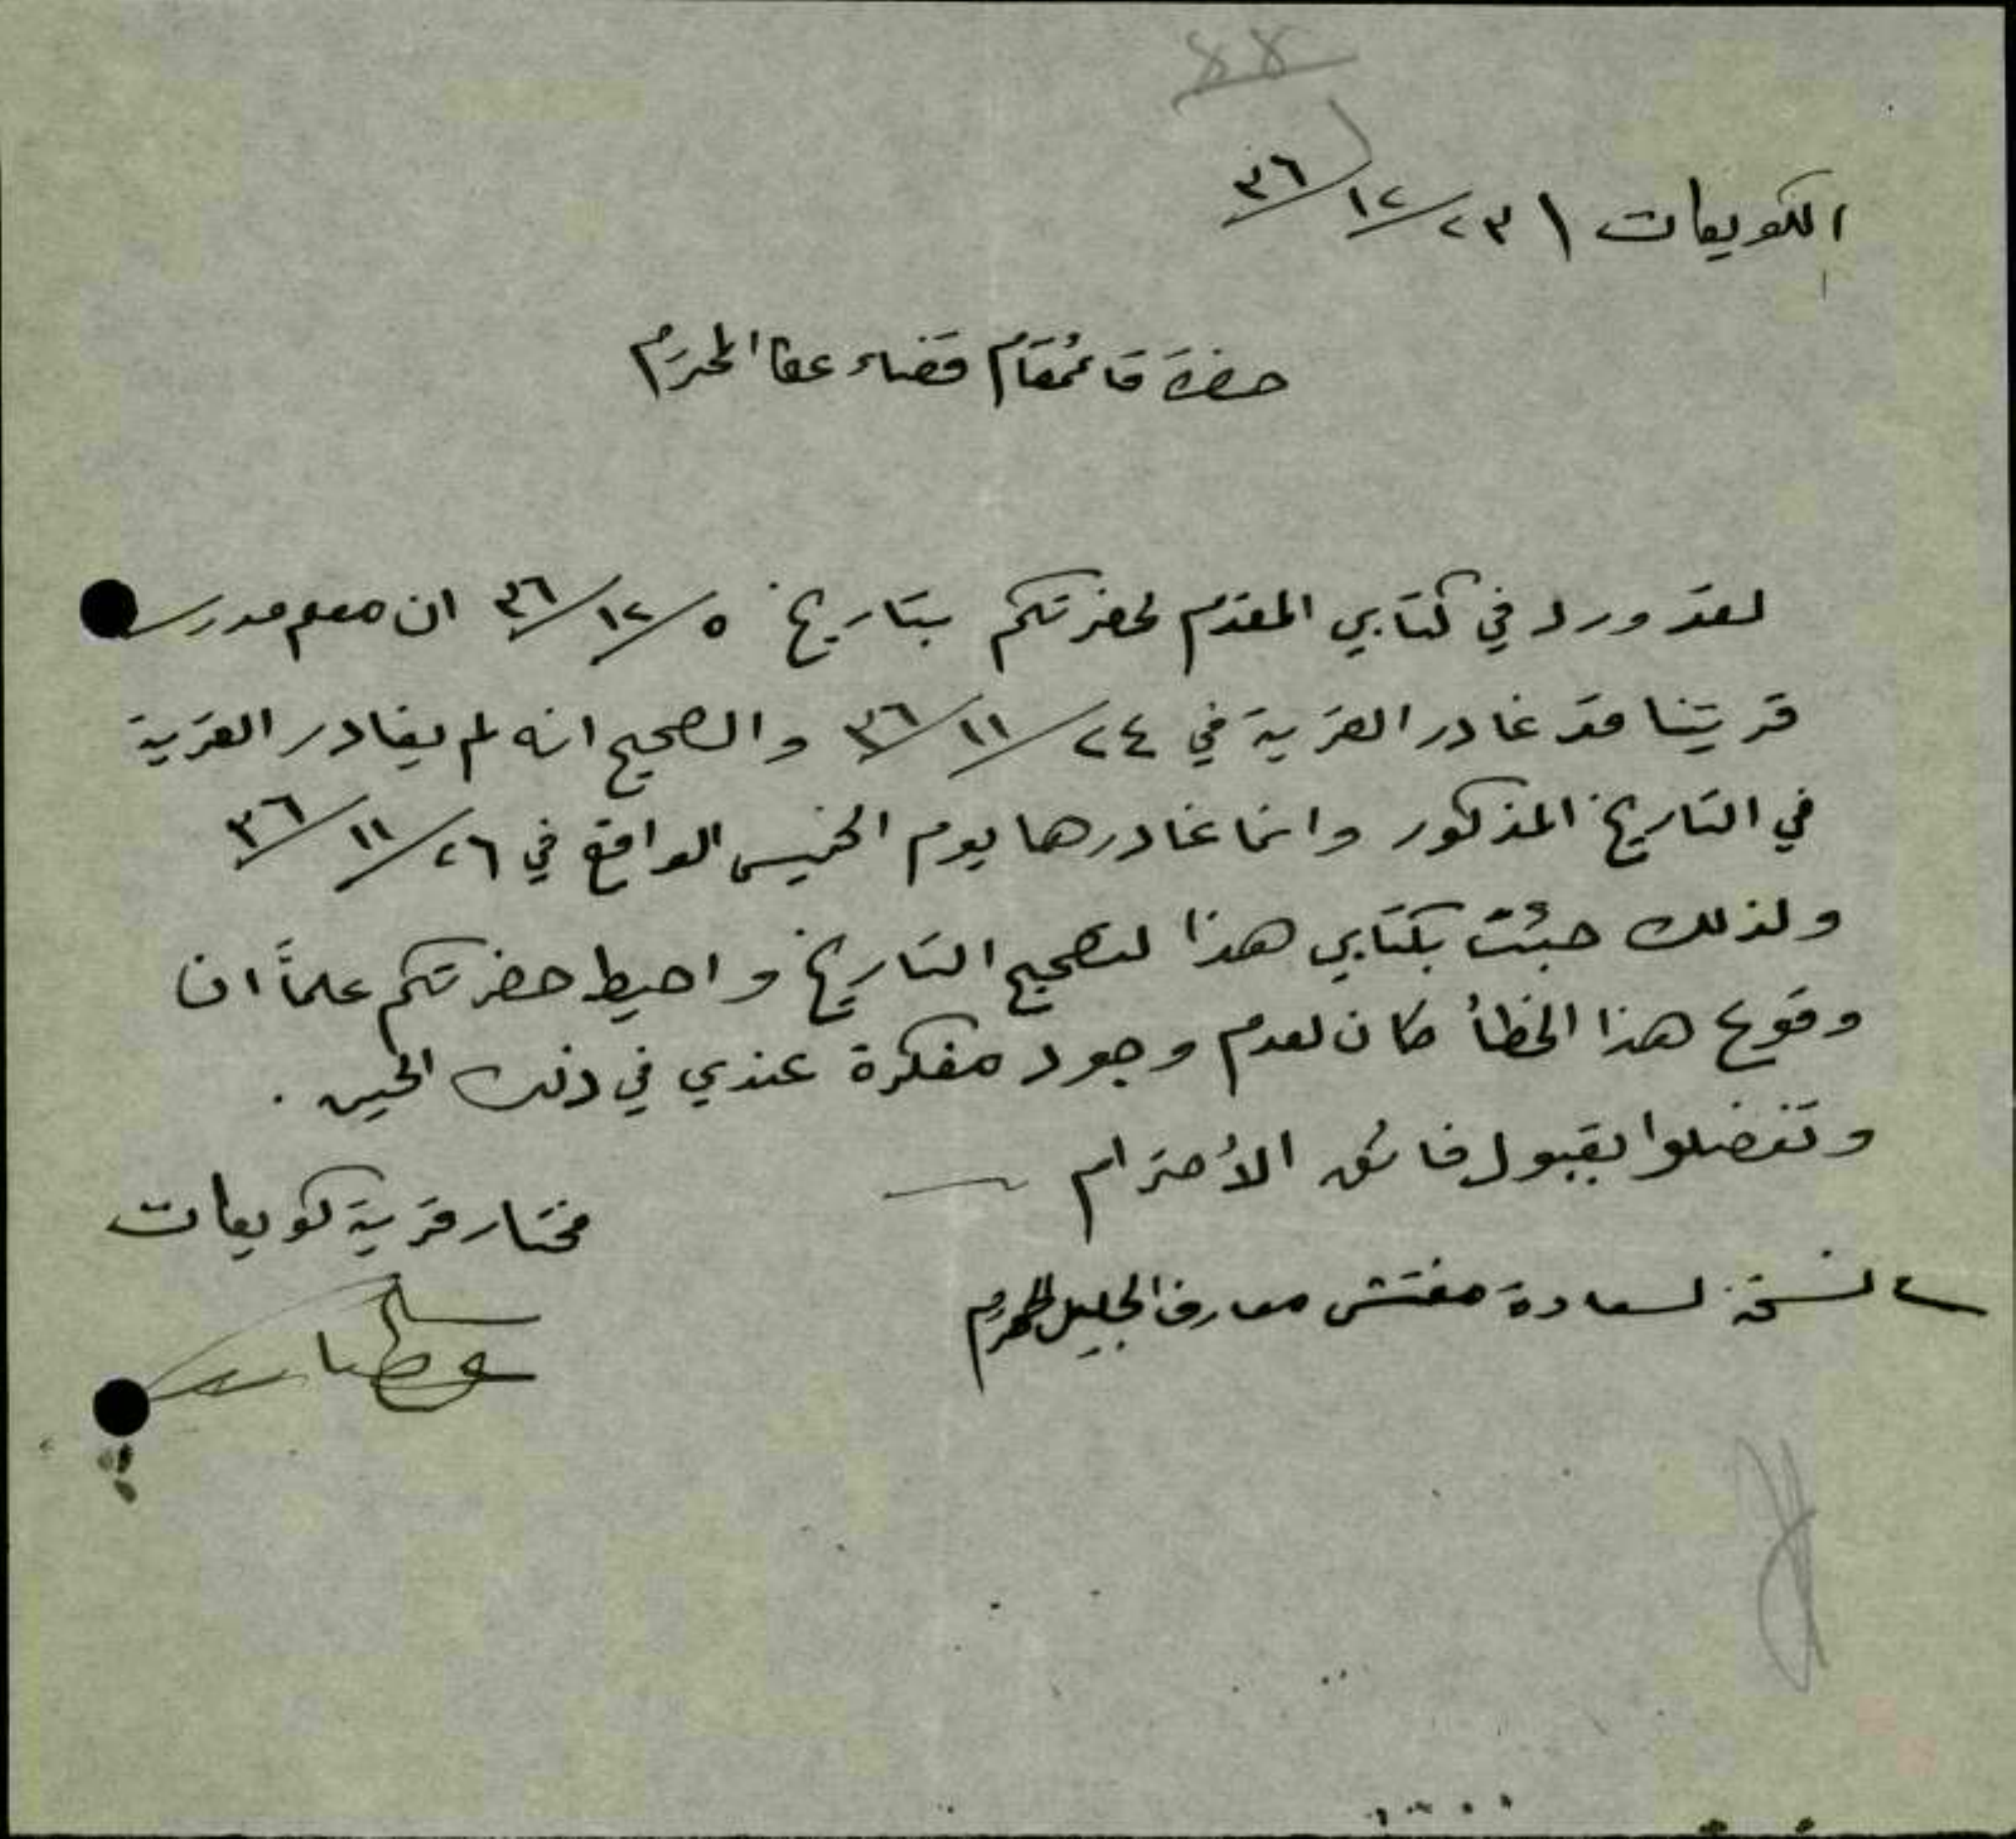 الكويكات ٢٣/١٢/٣٦
حضرة قائمقام قضاء عكا المحترم
لقد ورد في كتابي المقدم لحضرتكم بتاريخ ٥/١٢/٣٦ ان معلم مدرسة
قريتنا قد غادر القرية في ٢٤/١١/٣٦ والصحيح انه لم يغادر القرية
في التاريخ المذكور وانما غادرها يوم الخميس الواقع في ٢٦/١١/٣٦
ولذلك جئت بكتابي هذا لتصحيح التاريخ واحيط حضرتكم علماً ان
وقوع هذا الخطأ كان لعدم وجود مفكرة عندي في ذلك الحين .
وتفضلوا بقبول فائق الأحترام
مختار قرية كويكات
نسخة لسعادة مفتش معارف الجليل المحترم